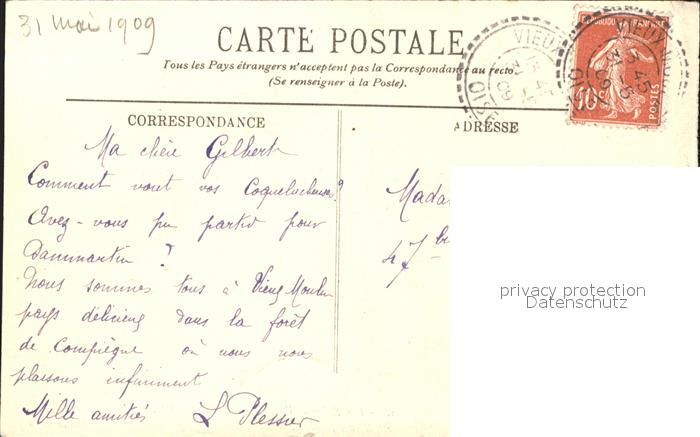 31 mai 1909
CARTE POSTALE
Tous les Pays étrangers n'acceptent pas la Correspondance au recto.
(Se renseigner à la Poste).
VIEUX
OISE
VIEUX-MOULIN
3 45
31 5
09
OISE
REPUBLIQUE FRANÇAISE
10c
POSTES
CORRESPONDANCE
ADRESSE
Ma chère Gilbert
Comment vont vos Coqueluches ?
Avez-vous pu partir pour
Dammartin ?
Nous sommes tous à Vieux Moulin
pays délicieux dans la forêt
de Compiègne où nous nous
plaisons infiniment
Mille amitiés L Plessier
Mada
47 b
privacy protection
Datenschutz